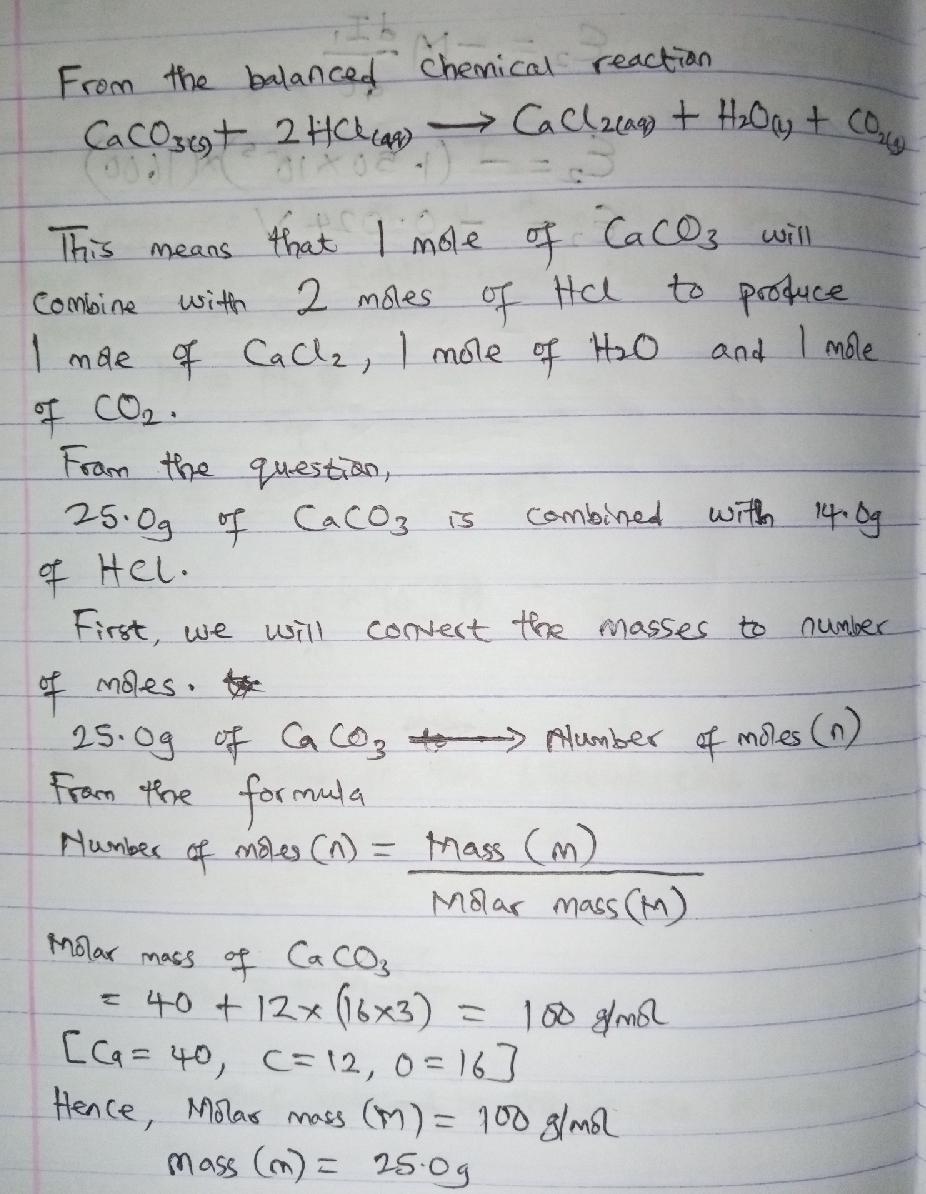 From the balanced chemical reaction
CaCO3(s) + 2HCl(aq) → CaCl2(aq) + H2O(l) + CO2(g)
This means that 1 mole of CaCO3 will
Combine with 2 moles of HCl to produce
1 mole of CaCl2, 1 mole of H2O and 1 mole
of CO2.
From the question,
25.0g of CaCO3 is combined with 14.0g
of HCl.
First, we will convert the masses to number
of moles.
25.0g of CaCO3 → Number of moles (n)
From the formula
Number of moles (n) = Mass (m)
Molar mass (M)
Molar mass of CaCO3
= 40 + 12 x (16x3) = 100 g/mol
[Ca = 40, C = 12, O = 16]
Hence, Molar mass (M) = 100 g/mol
mass (m) = 25.0g